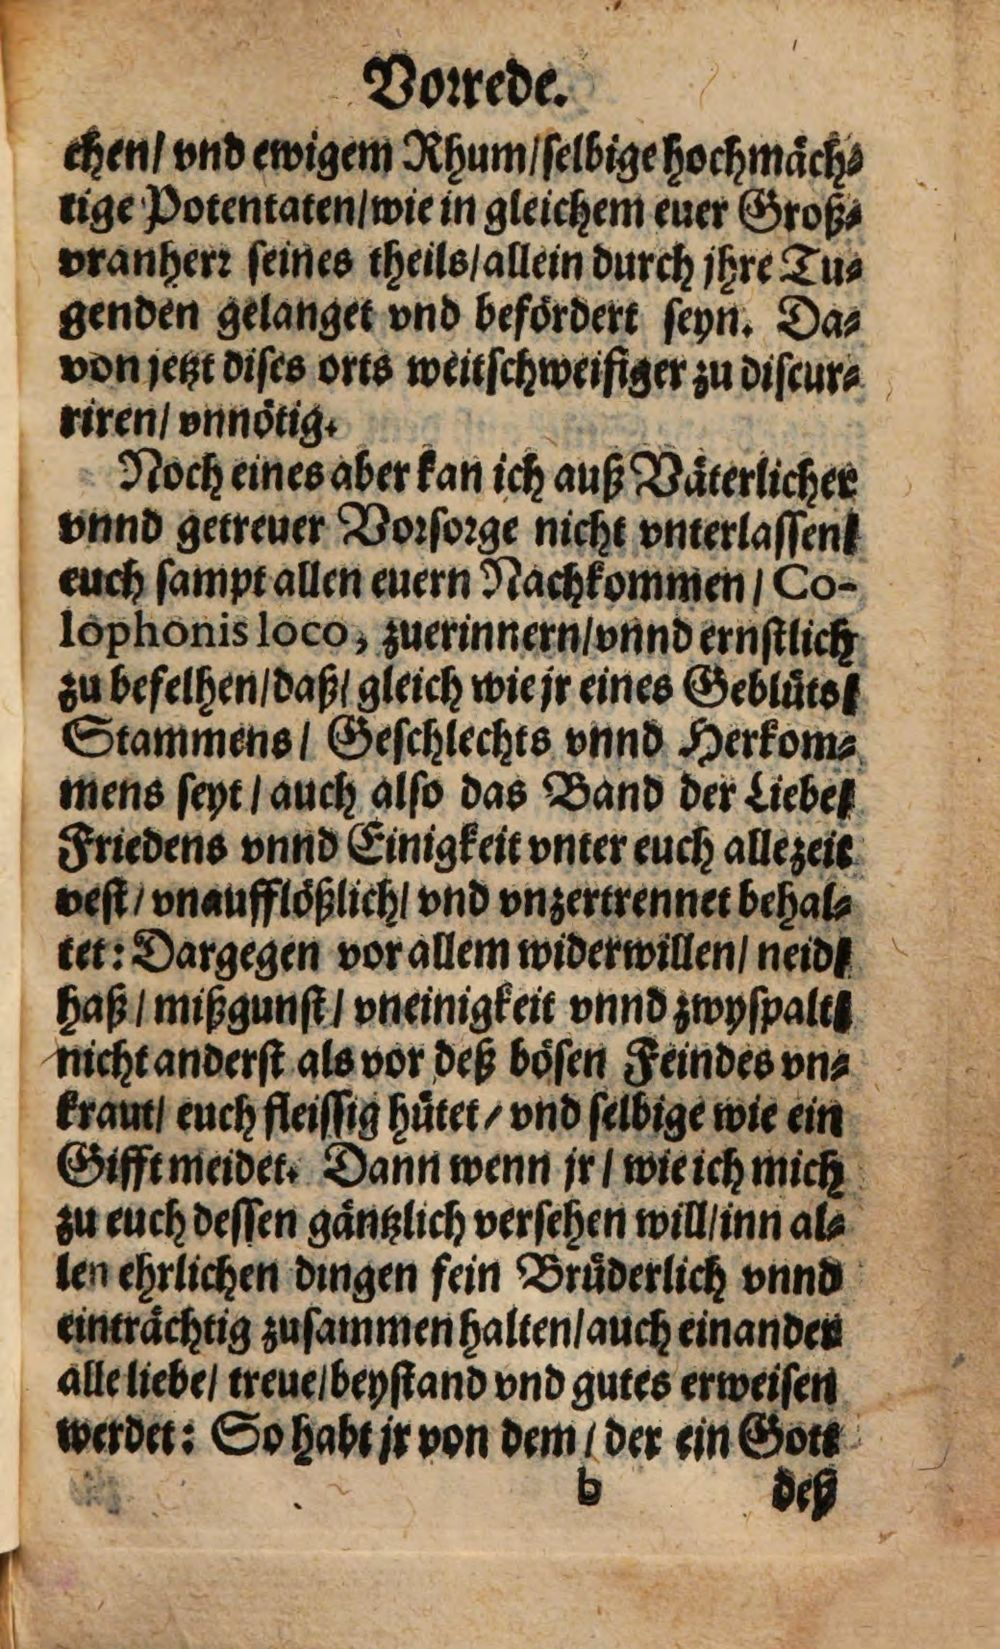 Vorrede.
chen/ vnd ewigem Rhum/ selbige hochmäch⸗
tige Potentaten/ wie in gleichem euer Groß⸗
vranherr seines theils/ allein durch jhre Tu⸗
genden gelanget vnd befördert seyn. Da⸗
von jetzt dises orts weitschweifiger zu discur⸗
riren/ vnnötig.
Noch eines aber kan ich auß Väterlicher
vnnd getreuer Vorsorge nicht vnterlassen/
euch sampt allen euern Nachkommen/ Co-
lophonis loco, zuerinnern/ vnnd ernstlich
zu befelhen/ daß/ gleich wie jr eines Geblüts/
Stammens/ Geschlechts vnnd Herkom⸗
mens seyt/ auch also das Band der Liebe/
Friedens vnnd Einigkeit vnter euch allezeit
vest/ vnaufflößlich/ vnd vnzertrennet behal⸗
tet: Dargegen vor allem widerwillen/ neid/
haß/ mißgunst/ vneinigkeit vnnd zwyspalt/
nicht anderst als vor deß bösen Feindes vn⸗
kraut/ euch fleissig hütet/ vnd selbige wie ein
Gifft meidet. Dann wenn jr/ wie ich mich
zu euch dessen gäntzlich versehen will/ inn al⸗
len ehrlichen dingen fein Brüderlich vnnd
einträchtig zusammen halten/ auch einander
alle liebe/ treue/ beystand vnd gutes erweisen
werdet: So habt jr von dem/ der ein Gott
b deß